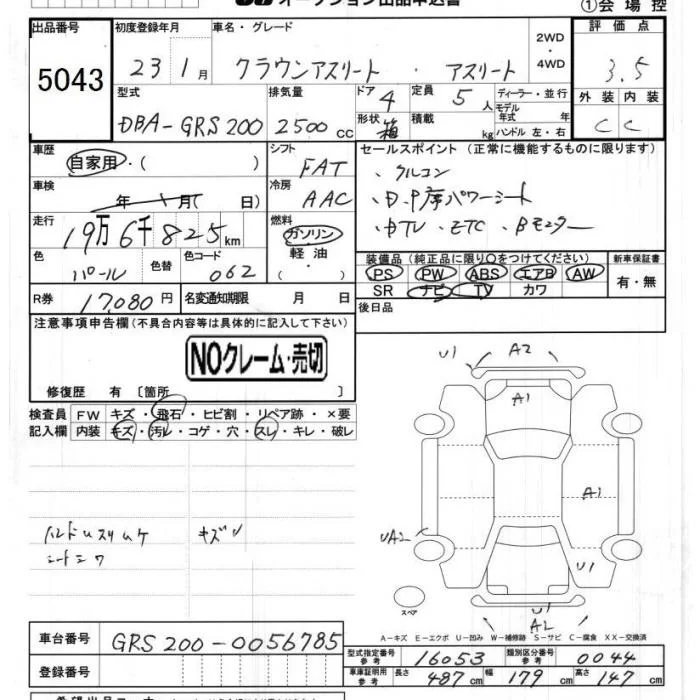 オークション出品申込書
①会場控
出品番号 初度登録年月 車名・グレード 2WD・4WD 評価点
5043 23 1月 クラウンアスリート ・ アスリート 3.5
型式 排気量 ドア 4 定員 5人 ディーラー・並行 外装 内装
DBA-GRS200 2500cc 形状 箱 積載 kg モデル年式 年 ハンドル 左・右 C C
車歴 自家用・( ) シフト FAT セールスポイント (正常に機能するものに限ります)
車検 年 月( 日) 冷房 AAC ・クルコン
走行 19万6千825km 燃料 ガソリン・軽油・( )
・D.P席パワーシート
・DTV ・ETC ・Bモニター
色 パール 色替 色コード 062
装備品 (純正品に限り○をつけてください) 新車保証書
PS PW ABS エアB AW 有・無
SR ナビ TV カワ
R券 17,080円 名変通知期限 月 日 後日品
注意事項申告欄(不具合内容等は具体的に記入して下さい)
NOクレーム・売切
修復歴 有 〔箇所 〕
検査員 FW キズ・飛石・ヒビ割・リペア跡・×要
記入欄 内装 キズ・汚レ・コゲ・穴・スレ・キレ・破レ
U1 A2
A1
A1
ハンドルスリムケ キズ
シートシワ
UA2
U1
スペア
U1
A2
A-キズ E-エクボ U-凹み W-補修跡 S-サビ C-腐食 XX-交換済
車台番号 GRS200-0056785
型式指定番号 参考 16053 類別区分番号 参考 0044
登録番号 車庫証明用 参考 長さ 487cm 幅 179cm 高さ 147cm